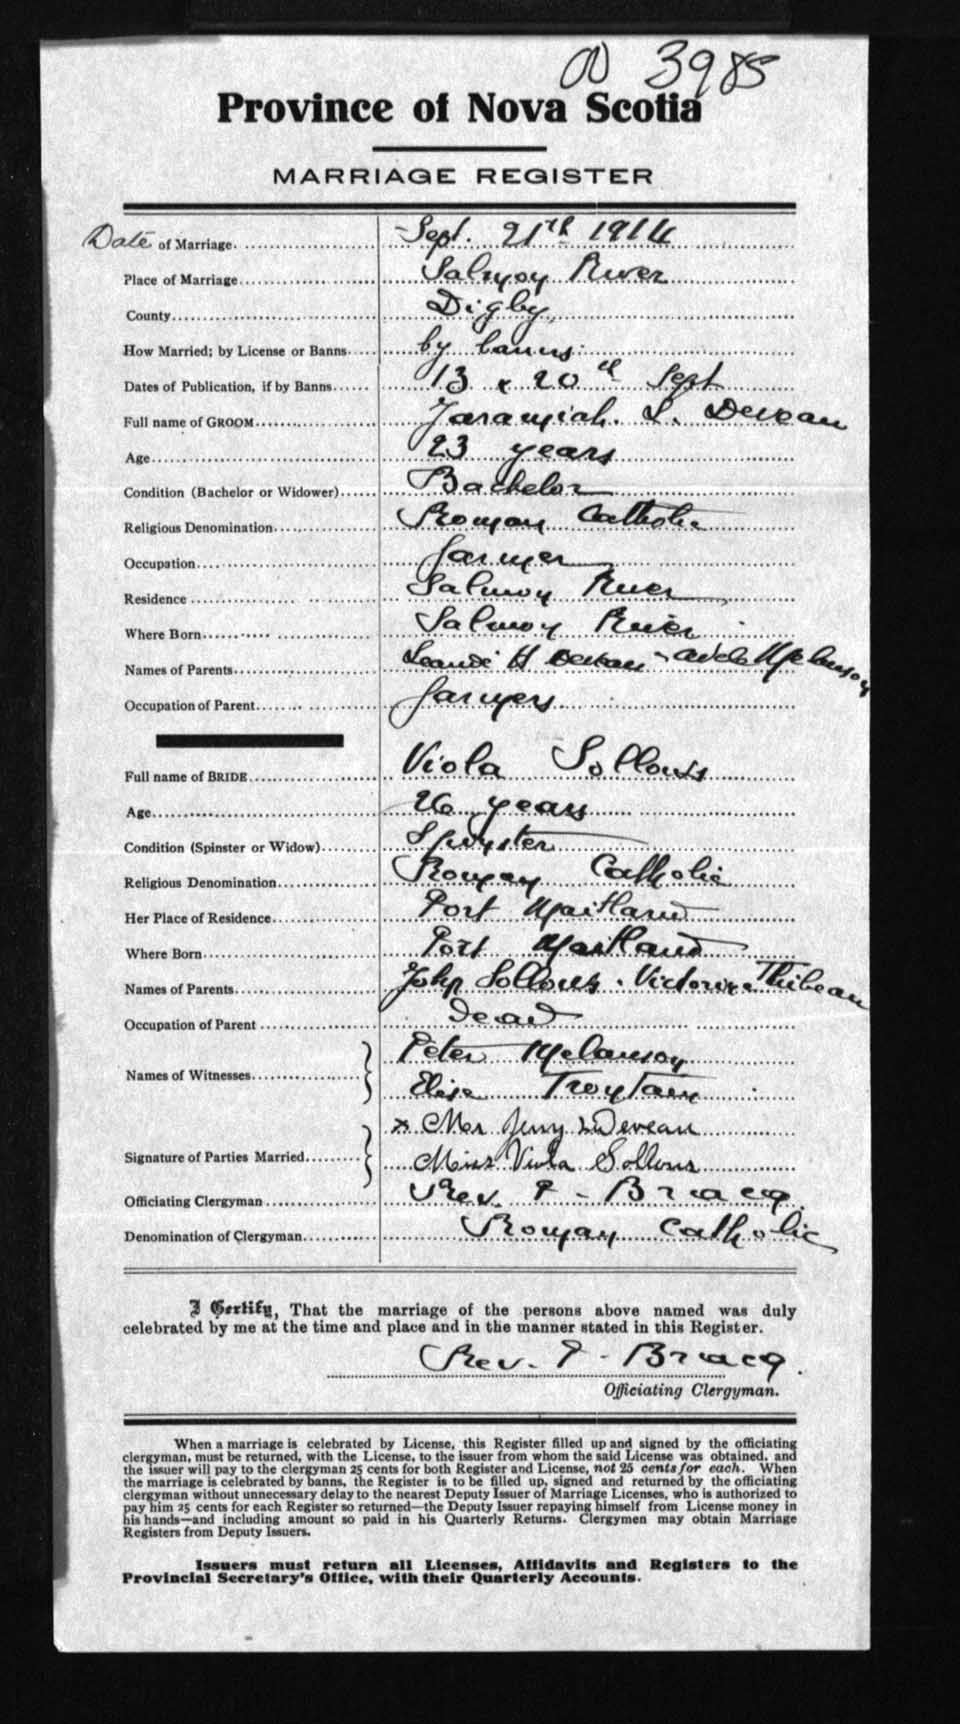 3985
Province of Nova Scotia
MARRIAGE REGISTER
Date of Marriage. Sept. 21th 1914
Place of Marriage Salmon River
County Digby
How Married; by License or Banns by banns
Dates of Publication, if by Banns 13 & 20th Sept
Full name of GROOM Jaramiah. L. Deveau
Age 23 years
Condition (Bachelor or Widower) Bachelor
Religious Denomination Roman Catholic
Occupation farmer
Residence Salmon River
Where Born Salmon River
Names of Parents H Deveau - Adele Melanson
Occupation of Parent farmers
Full name of BRIDE Viola Sollows
Age 26 years
Condition (Spinster or Widow) Spinster
Religious Denomination Roman Catholic
Her Place of Residence Port Maitland
Where Born Port Maitland
Names of Parents John Sollows. Victorine Thibeau
Occupation of Parent dead
Names of Witnesses Peter Melanson
Elise
Signature of Parties Married x Mr Jerry L Deveau
Miss Viola Sollows
Officiating Clergyman Rev. P - Bracq.
Denomination of Clergyman Roman Catholic
I Certify, That the marriage of the persons above named was duly
celebrated by me at the time and place and in the manner stated in this Register.
Rev. P - Bracq.
Officiating Clergyman.
When a marriage is celebrated by License, this Register filled up and signed by the officiating
clergyman, must be returned, with the License, to the issuer from whom the said License was obtained, and
the issuer will pay to the clergyman 25 cents for both Register and License, not 25 cents for each. When
the marriage is celebrated by banns, the Register is to be filled up, signed and returned by the officiating
clergyman without unnecessary delay to the nearest Deputy Issuer of Marriage Licenses, who is authorized to
pay him 25 cents for each Register so returned—the Deputy Issuer repaying himself from License money in
his hands—and including amount so paid in his Quarterly Returns. Clergymen may obtain Marriage
Registers from Deputy Issuers.
Issuers must return all Licenses, Affidavits and Registers to the
Provincial Secretary's Office, with their Quarterly Accounts.